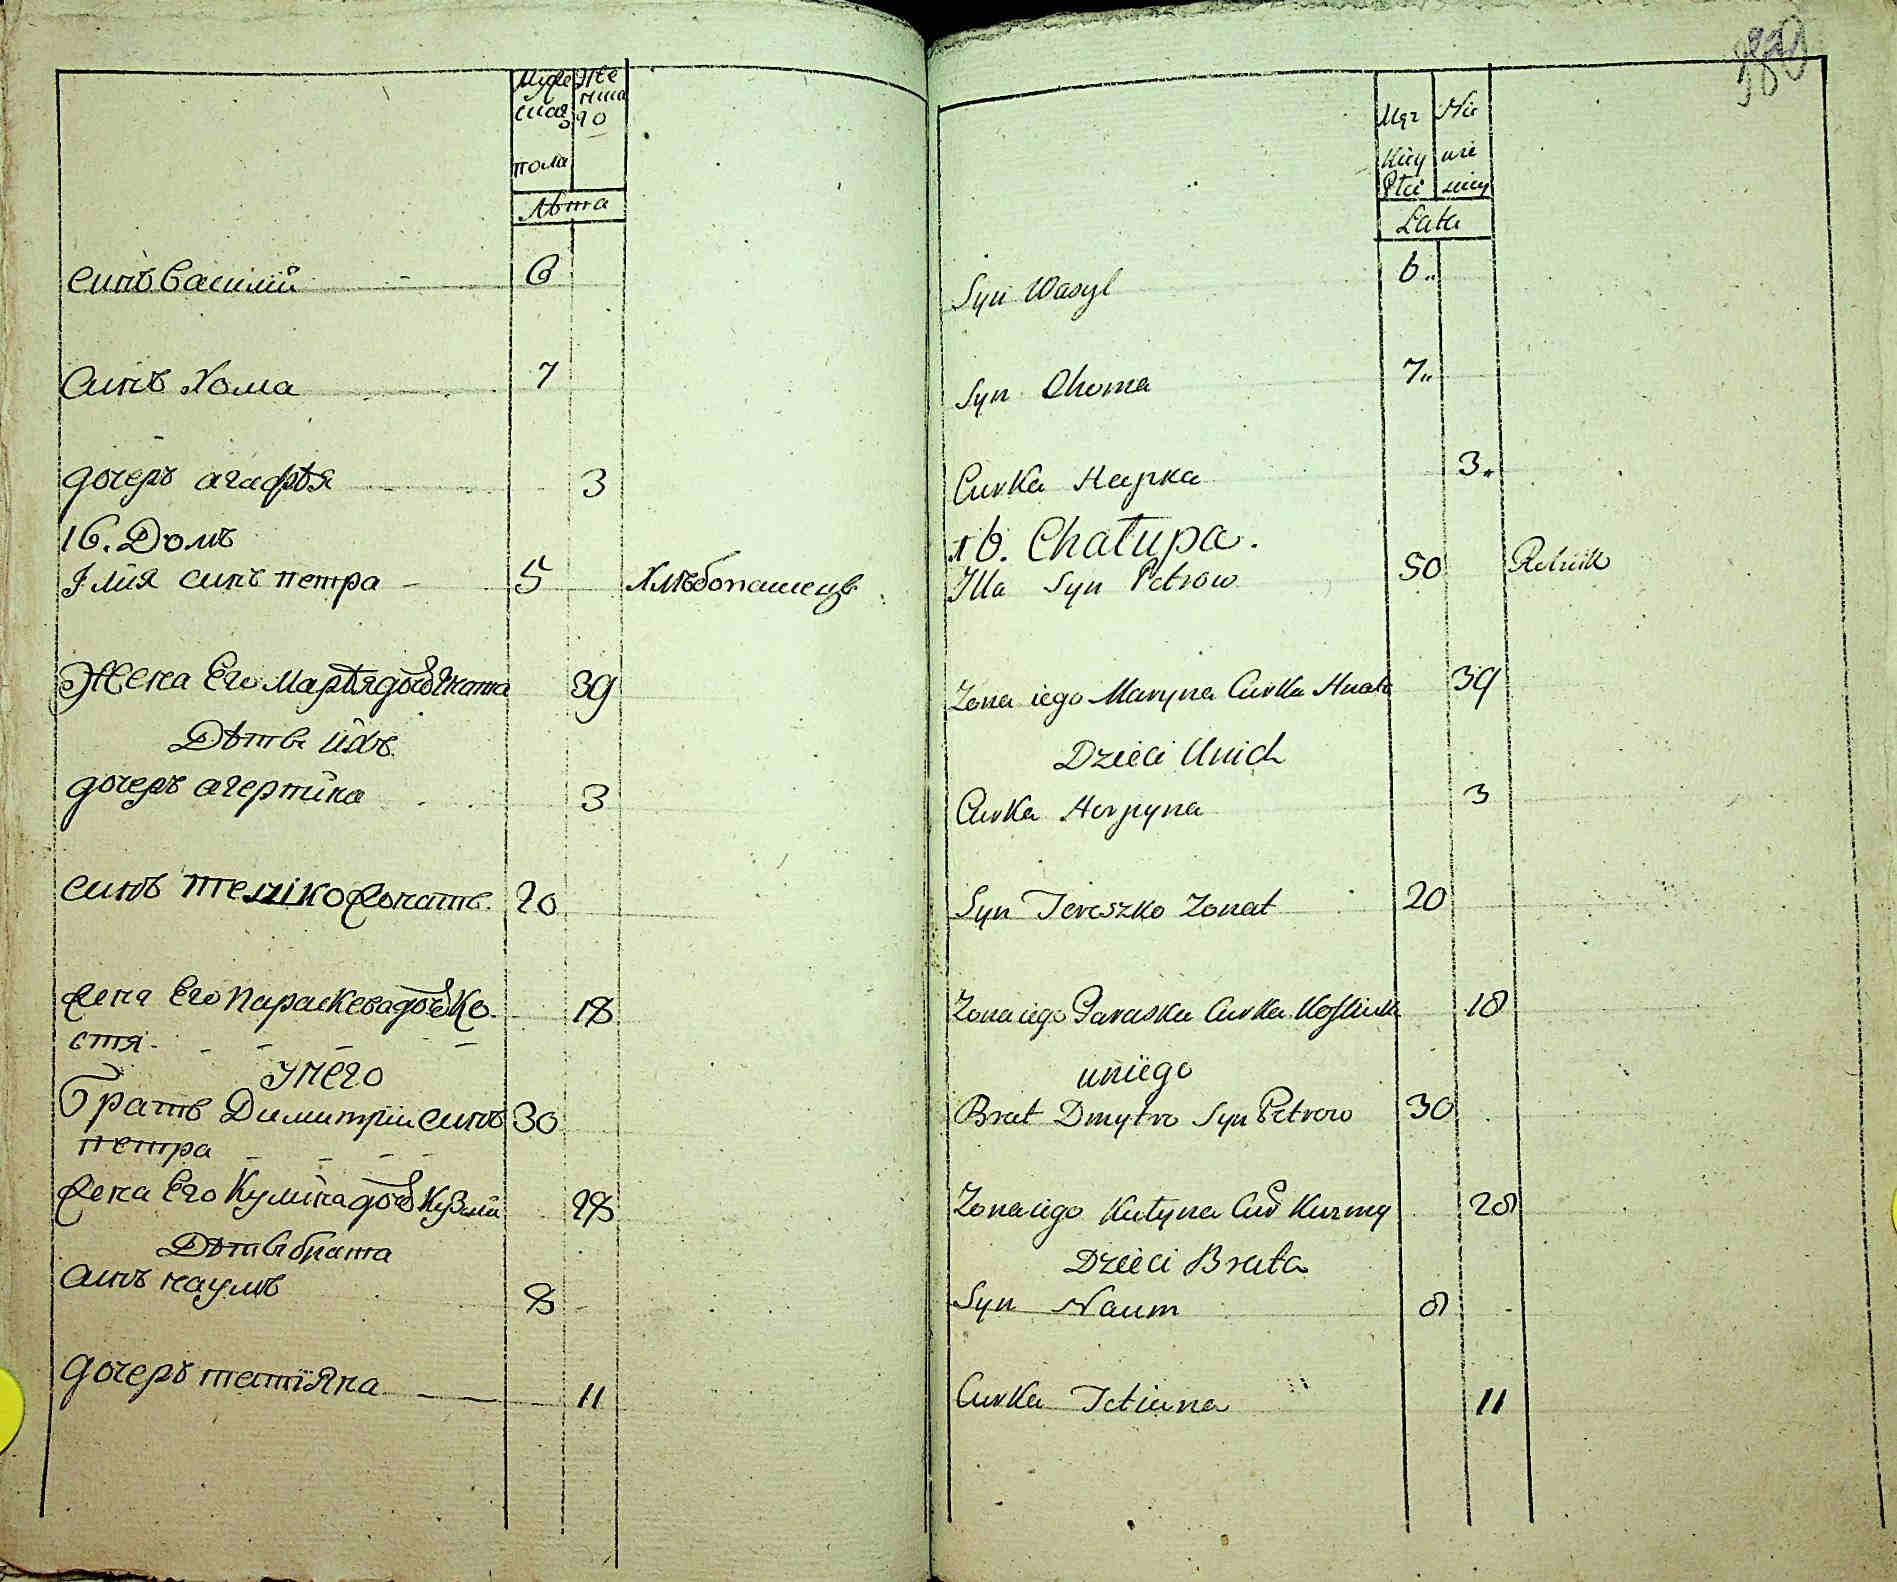 380
Мужескаго
Женскаго
пола
Лѣта
синъ Василій 6
Синъ Хома 7
дочеръ агафѣя 3
16. Домъ
Ілія синъ петра 5 Хлѣбопашецъ
Жена Его Марѣя дочь Игната 39
Дѣти ихъ
дочеръ агерпина 3
синъ терешко женатъ 20
жена Его Параскева дочь Ко-
стя 18
У него
Братъ Димитрій синъ 30
петра
жена Его Кулина дочь Кузми 28
Дѣти брата
Синъ наумъ 8
дочеръ татіяна 11
Męz Nie
kiey wie
Płci sciey
Lata
Syn Wasyl 6
Syn Choma 7
Curka Hapka 3
16. Chałupa.
Illa Syn Petrow 50 Rolnik
Zona iego Maryna Curka Hnata 39
Dzieci Unich
Curka Horpyna 3
Syn Tereszko Zonat 20
Zona iego Paraska Curka Kostiuka 18
uniego
Brat Dmytro Syn Petrow 30
Zona iego Kulyna Cur Kuzmy 28
Dzieci Brata
Syn Naum 8
Curka Tetiana 11